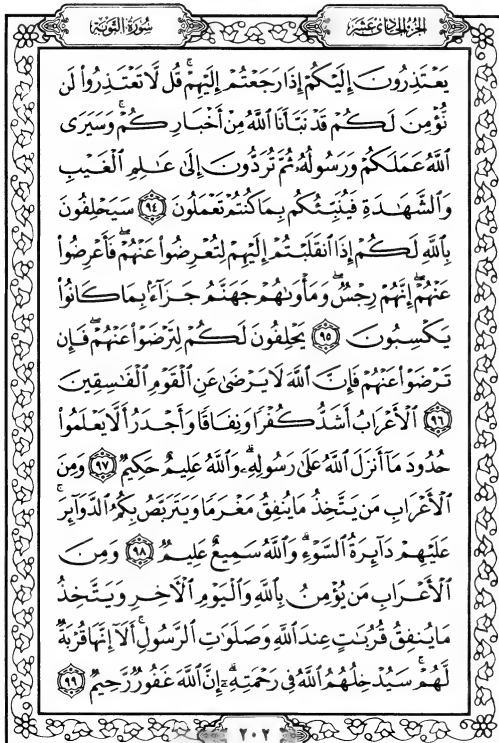 الجزء الحادى عشر
سورة التوبة
يَعْتَذِرُونَ إِلَيْكُمْ إِذَا رَجَعْتُمْ إِلَيْهِمْ ۚ قُل لَّا تَعْتَذِرُوا۟ لَن
نُّؤْمِنَ لَكُمْ قَدْ نَبَّأَنَا ٱللَّهُ مِنْ أَخْبَارِكُمْ ۚ وَسَيَرَى
ٱللَّهُ عَمَلَكُمْ وَرَسُولُهُۥ ثُمَّ تُرَدُّونَ إِلَىٰ عَٰلِمِ ٱلْغَيْبِ
وَٱلشَّهَٰدَةِ فَيُنَبِّئُكُم بِمَا كُنتُمْ تَعْمَلُونَ ٩٤ سَيَحْلِفُونَ
بِٱللَّهِ لَكُمْ إِذَا ٱنقَلَبْتُمْ إِلَيْهِمْ لِتُعْرِضُوا۟ عَنْهُمْ ۖ فَأَعْرِضُوا۟
عَنْهُمْ ۖ إِنَّهُمْ رِجْسٌ ۖ وَمَأْوَىٰهُمْ جَهَنَّمُ جَزَآءًۢ بِمَا كَانُوا۟
يَكْسِبُونَ ٩٥ يَحْلِفُونَ لَكُمْ لِتَرْضَوْا۟ عَنْهُمْ ۖ فَإِن
تَرْضَوْا۟ عَنْهُمْ فَإِنَّ ٱللَّهَ لَا يَرْضَىٰ عَنِ ٱلْقَوْمِ ٱلْفَٰسِقِينَ
٩٦ ٱلْأَعْرَابُ أَشَدُّ كُفْرًا وَنِفَاقًا وَأَجْدَرُ أَلَّا يَعْلَمُوا۟
حُدُودَ مَآ أَنزَلَ ٱللَّهُ عَلَىٰ رَسُولِهِۦ ۗ وَٱللَّهُ عَلِيمٌ حَكِيمٌ ٩٧ وَمِنَ
ٱلْأَعْرَابِ مَن يَتَّخِذُ مَا يُنفِقُ مَغْرَمًا وَيَتَرَبَّصُ بِكُمُ ٱلدَّوَآئِرَ ۚ
عَلَيْهِمْ دَآئِرَةُ ٱلسَّوْءِ ۗ وَٱللَّهُ سَمِيعٌ عَلِيمٌ ٩٨ وَمِنَ
ٱلْأَعْرَابِ مَن يُؤْمِنُ بِٱللَّهِ وَٱلْيَوْمِ ٱلْـَٔاخِرِ وَيَتَّخِذُ
مَا يُنفِقُ قُرُبَٰتٍ عِندَ ٱللَّهِ وَصَلَوَٰتِ ٱلرَّسُولِ ۚ أَلَآ إِنَّهَا قُرْبَةٌ
لَّهُمْ ۚ سَيُدْخِلُهُمُ ٱللَّهُ فِى رَحْمَتِهِۦٓ ۗ إِنَّ ٱللَّهَ غَفُورٌ رَّحِيمٌ ٩٩
٢٠٢